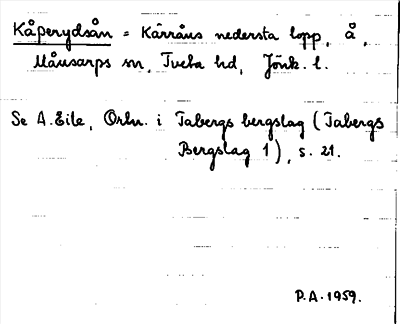 Kåperydsån = Kärråns nedersta lopp, å,
Månsarps sn, Tveta hd, Jönk. l.
Se A. Eile, Ortn. i Tabergs bergslag (Tabergs
Bergslag 1), s. 21.
P.A. 1959.